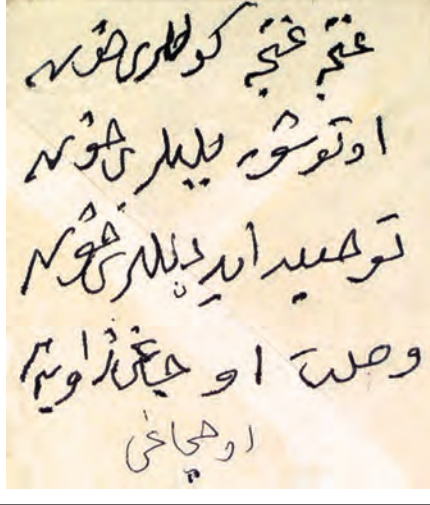 غنجه غنجه كوللرى خوش
اوتوشور بلبللرى خوش
توحيد ايدر ديللرى خوش
وصلت اوجاغى زاويه
اوجاغى